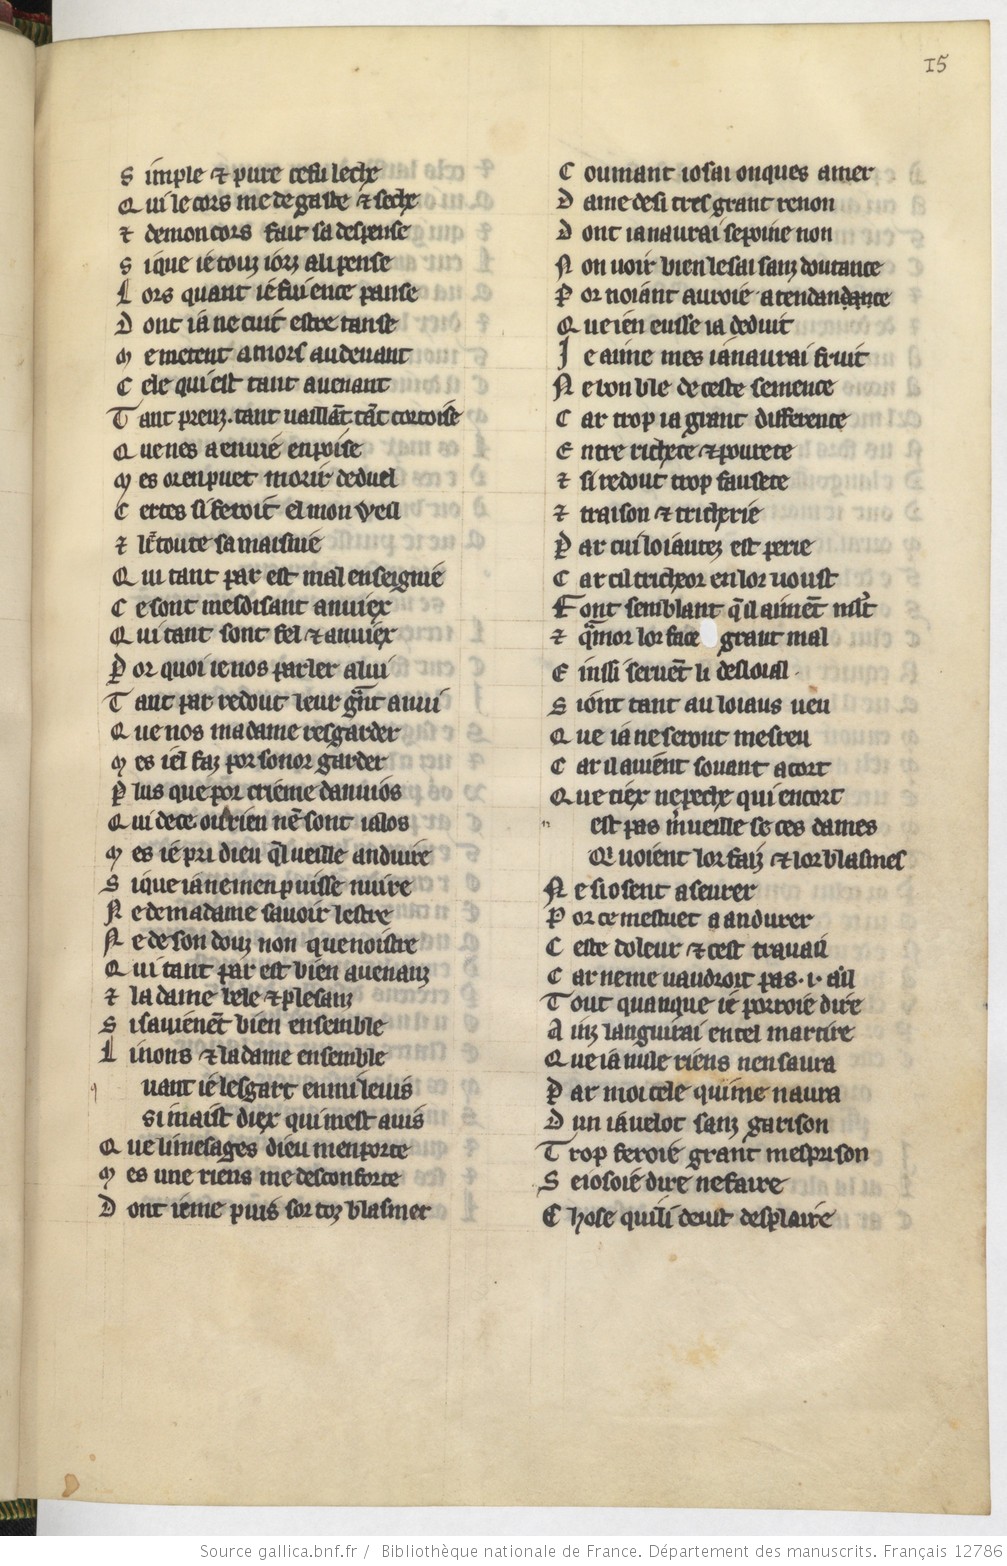 15
S imple & pure ce fu leche
Q ui le cors me degaste & seche
& demon cors fait sa despense
S ique ie touz iorz ali pense
L ors quant ie sui ence panse
D ont ia ne cuit estre tanse
M e metent amors audeuant
C ele qui est tant auenant
T ant preuz . tant uaillāt tāt cortoise
Q uenes a enuie enpoise
M es oren puet morir deduel
C ertes si feroit el mon veil
& toute sa maisnie
Q ui tant par est mal enseignie
C e sont mesdisant anuiex
Q ui tant sont fel & anuiex
P or quoi ie nos parler alui
T ant par redout leur gnt anui
Q ue nos ma dame resgarder
M es iel faz por sonor garder
P lus que por crieme danuios
Q ui de ce ou rien nē sont ialos
M es ie pri dieu ql ueille anduire
S ique ia nemen puisse nuire
N e de ma dame sauoir lestre
N e de son douz non quenoistre
Q ui tant par est bien auenanz
& la dame bele & plesanz
S i sauienēt bien ensemble
L i nons & la dame ensemble
q uant ie lesgart enmi le uis
si maist diex qui mest auis
Q ue li mesages dieu men porte
M es une riens me desconforte
D ont ie me puis sor toz blasmer
C oumant iosai onques amer
D ame de si tres grant renon
D ont ia naurai se poine non
N on uoir bien le sai sanz doutance
P or noiant auroie atendandance
Q ue ien eusse ia deduit
J e aime mes ia naurai fruit
N e bon ble de ceste semence
C ar trop ia grant difference
E ntre richece & pourete
& si redout trop fausete
& traison & tricherie
P ar cui loiautez est perie
C ar cil tricheor en lor uoust
F ont semblant q̄ il aimēt mlt
& qmor lor face grant mal
E insi seruēt li desloial .
S iont tant au loiaus ueu
Q ue ia ne seront mescreu
C ar il auient souant a cort
Q ue tiex ne peche qui encort
n est pas m̄ueille se ces dames
Q uoient lor faiz & lor blasmes
N e si osent aseurer
P or ce mestuet a andurer
C este doleur & cest trauail
C ar ne me uaudroit pas . i . ail
T out quanque ie porroie dire
A inz languirai en cel martire
Q ue ia nule riens nen saura
P ar moi cele qui me naura
D un iauelot sanz garison
T rop feroie grant mesprison
S e iosoie dire ne faire
C hose qui li deust desplaire
Source gallica.bnf.fr / Bibliothèque nationale de France. Département des manuscrits. Français 12786